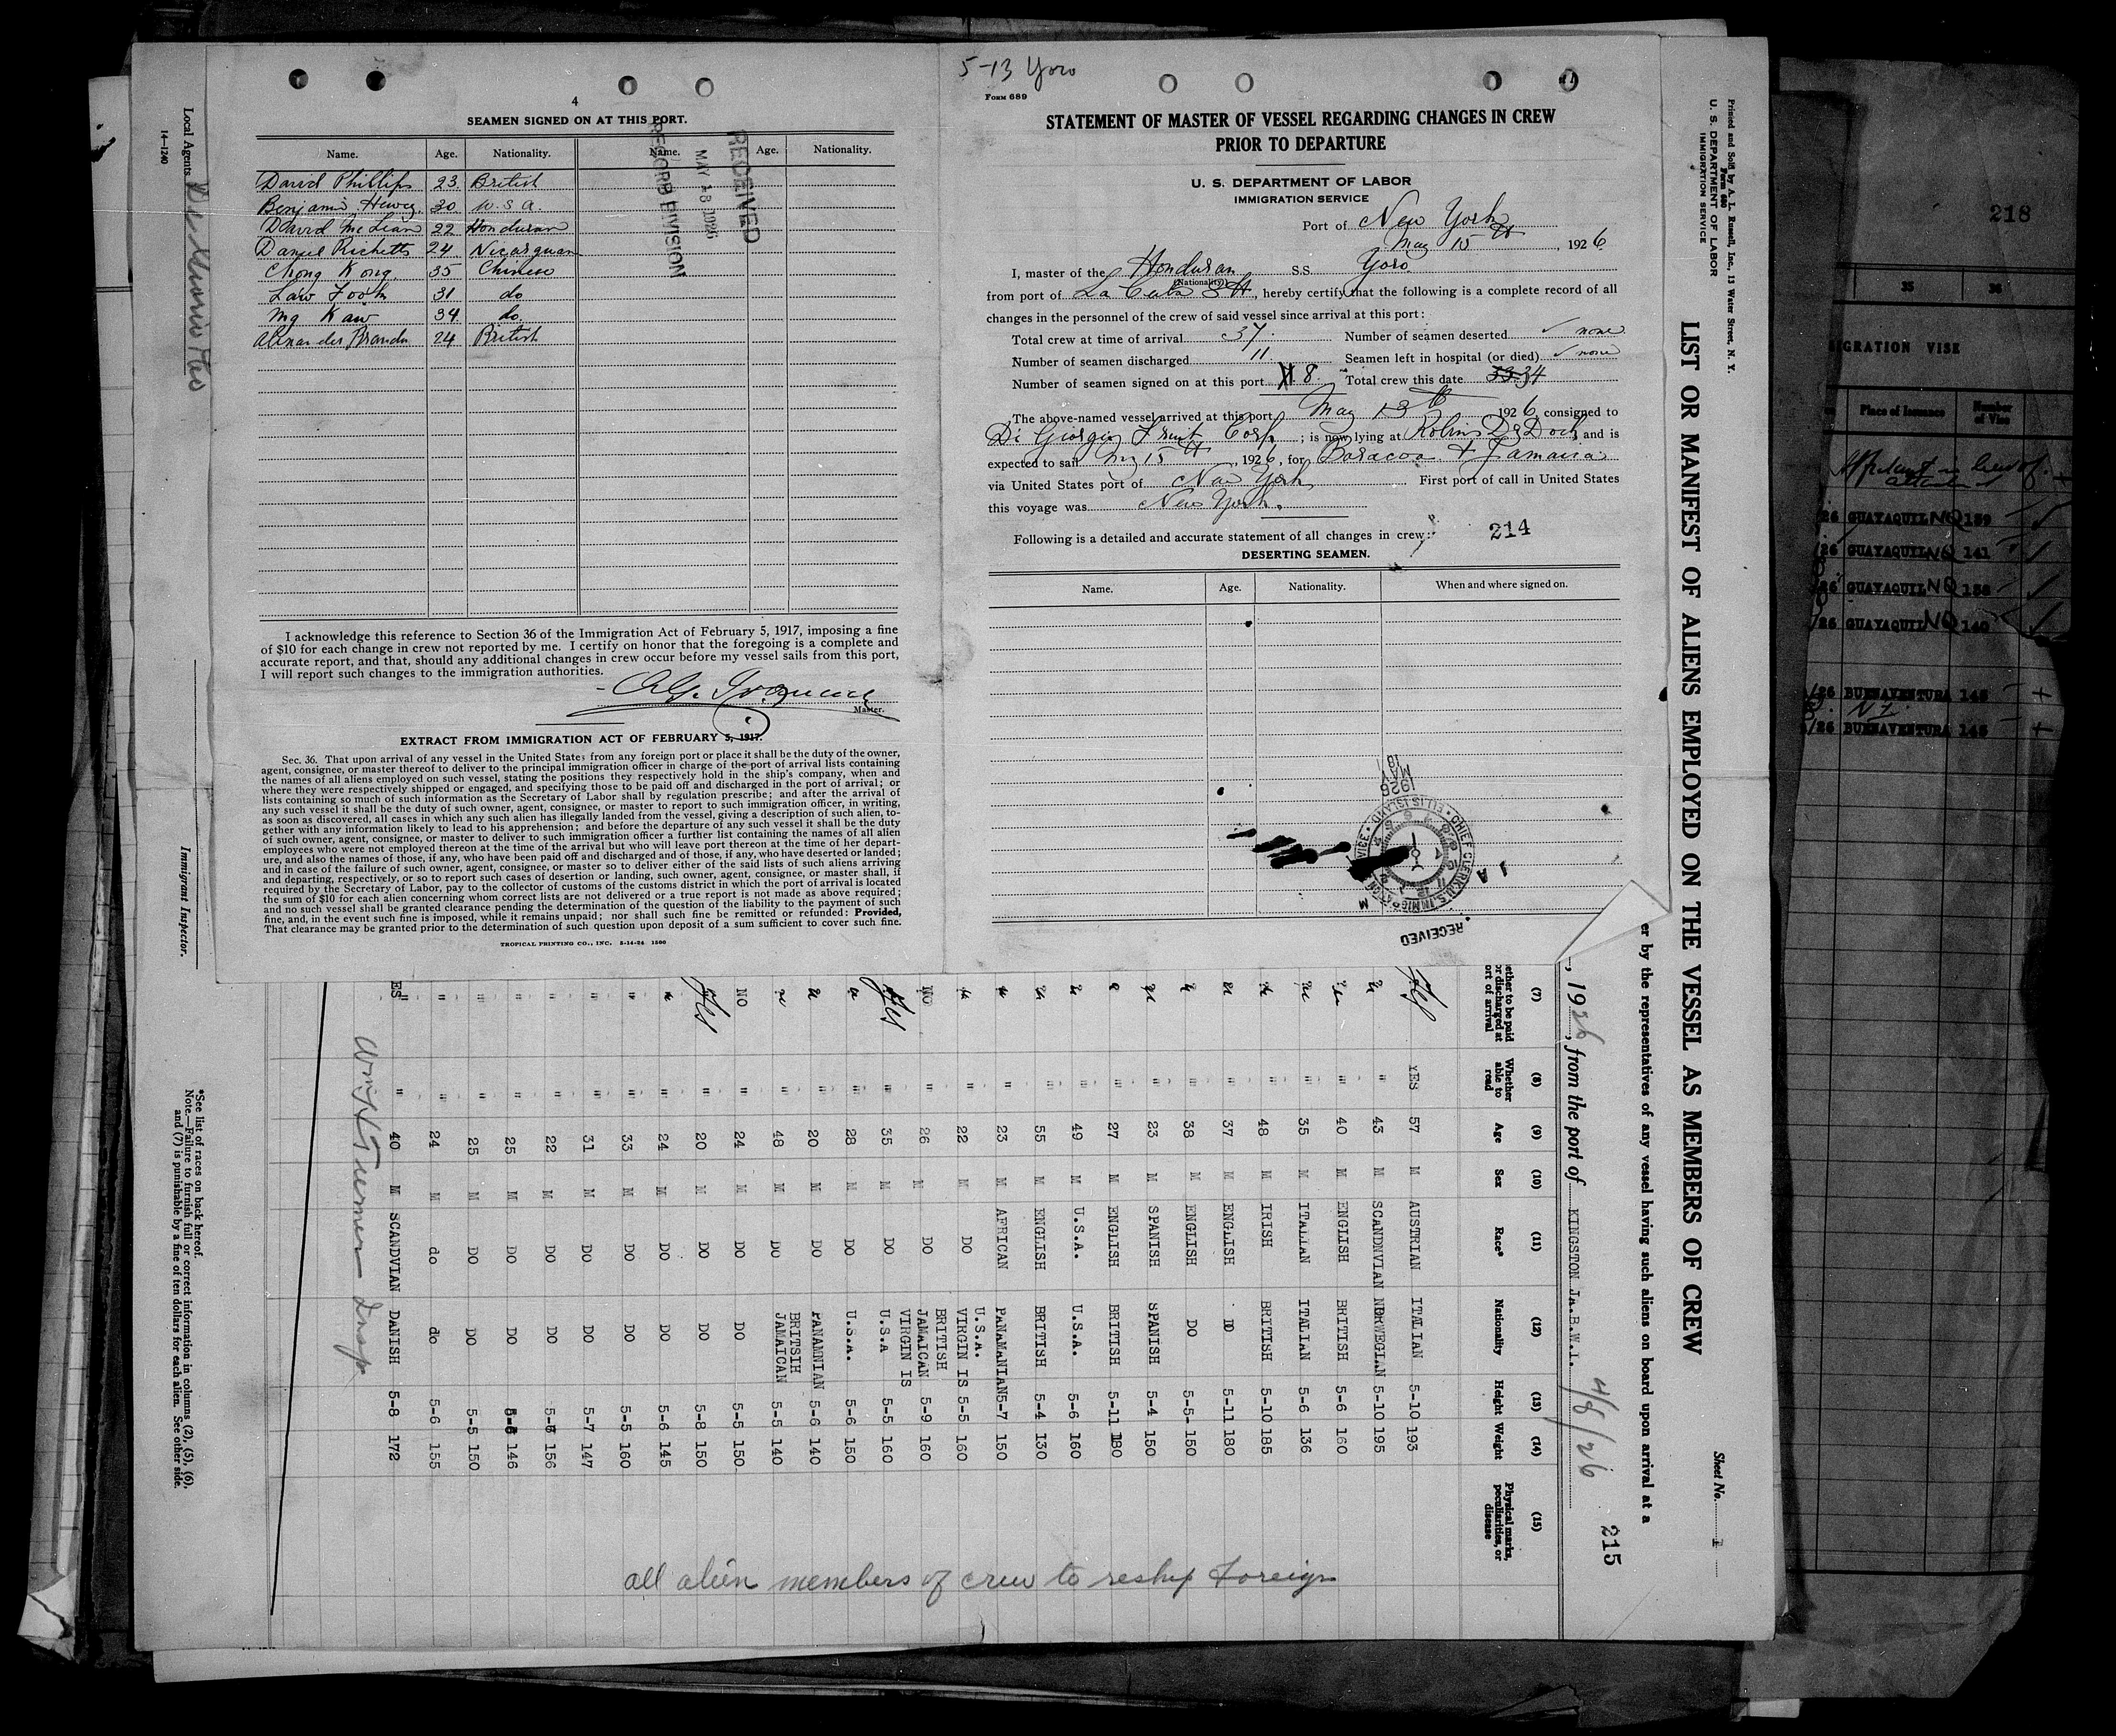 4
SEAMEN SIGNED ON AT THIS PORT.
Name. Age. Nationality. Name. Age. Nationality.
David Phillips 23 British
Benjami Hewey 30 U.S.A.
David McLean 22 Honduran
Daniel Ricketts 24 Nicaraguan
Chong Kong 35 Chinese
Law Fook 31 do
Ng Kaw 34 do.
Alexander Brandn 24 British
RECEIVED
MAY 18 1926
RECORD DIVISION
I acknowledge this reference to Section 36 of the Immigration Act of February 5, 1917, imposing a fine
of $10 for each change in crew not reported by me. I certify on honor that the foregoing is a complete and
accurate report, and that, should any additional changes in crew occur before my vessel sails from this port,
I will report such changes to the immigration authorities.
Master.
EXTRACT FROM IMMIGRATION ACT OF FEBRUARY 5, 1917.
Sec. 36. That upon arrival of any vessel in the United States from any foreign port or place it shall be the duty of the owner,
agent, consignee, or master thereof to deliver to the principal immigration officer in charge of the port of arrival lists containing
the names of all aliens employed on such vessel, stating the positions they respectively hold in the ship's company, when and
where they were respectively shipped or engaged, and specifying those to be paid off and discharged in the port of arrival; or
lists containing so much of such information as the Secretary of Labor shall by regulation prescribe; and after the arrival of
any such vessel it shall be the duty of such owner, agent, consignee, or master to report to such immigration officer, in writing,
as soon as discovered, all cases in which any such alien has illegally landed from the vessel, giving a description of such alien, to-
gether with any information likely to lead to his apprehension; and before the departure of any such vessel it shall be the duty
of such owner, agent, consignee, or master to deliver to such immigration officer a further list containing the names of all alien
employees who were not employed thereon at the time of the arrival but who will leave port thereon at the time of her depart-
ure, and also the names of those, if any, who have been paid off and discharged and of those, if any, who have deserted or landed;
and in case of the failure of such owner, agent, consignee, or master so to deliver either of the said lists of such aliens arriving
and departing, respectively, or so to report such cases of desertion or landing, such owner, agent, consignee, or master shall, if
required by the Secretary of Labor, pay to the collector of customs of the customs district in which the port of arrival is located
the sum of $10 for each alien concerning whom correct lists are not delivered or a true report is not made as above required;
and no such vessel shall be granted clearance pending the determination of the question of the liability to the payment of such
fine, and, in the event such fine is imposed, while it remains unpaid; nor shall such fine be remitted or refunded: Provided,
That clearance may be granted prior to the determination of such question upon deposit of a sum sufficient to cover such fine.
TROPICAL PRINTING CO., INC. 5-14-24 1500
5-13 Yoro
Form 689
STATEMENT OF MASTER OF VESSEL REGARDING CHANGES IN CREW
PRIOR TO DEPARTURE
U. S. DEPARTMENT OF LABOR
IMMIGRATION SERVICE
Port of New York
May 15th, 1926
I, master of the Honduran S.S. Yoro
(Nationality)
from port of La Ceiba S H, hereby certify that the following is a complete record of all
changes in the personnel of the crew of said vessel since arrival at this port:
Total crew at time of arrival 37. Number of seamen deserted none
Number of seamen discharged 11 Seamen left in hospital (or died) none
Number of seamen signed on at this port 8. Total crew this date 33 34
The above-named vessel arrived at this port May 13th 1926, consigned to
Di Giorgio Fruit Corp.; is now lying at Robins Dry Dock, and is
expected to sail May 15th, 1926, for Baracoa & Jamaica
via United States port of New York First port of call in United States
this voyage was New York.
Following is a detailed and accurate statement of all changes in crew: 214
DESERTING SEAMEN.
Name. Age. Nationality. When and where signed on.
CHIEF CLERK U.S. IMMIGRATION SERVICE ELLIS ISLAND
MAY 18 1926
RECEIVED
Printed and Sold by A. L. Russell, Inc., 13 Water Street, N. Y.
Form 680
U. S. DEPARTMENT OF LABOR
IMMIGRATION SERVICE
LIST OR MANIFEST OF ALIENS EMPLOYED ON THE VESSEL AS MEMBERS OF CREW
Sheet No. 1
er by the representatives of any vessel having such aliens on board upon arrival at a
215
, 1926, from the port of KINGSTON Ja.B.W.I. 4/8/26
(7) (8) (9) (10) (11) (12) (13) (14) (15)
ether to be paid or discharged at ort of arrival Whether able to read Age Sex Race* Nationality Height Weight Physical marks, peculiarities, or disease
Yes YES 57 M AUSTRIAN ITALIAN 5-10 193
" " 43 M SCANDNVIAN NORWEGIAN 5-10 195
" " 40 M ENGLISH BRITISH 5-6 160
" " 35 M ITALIAN ITALIAN 5-6 136
" " 48 M IRISH BRITISH 5-10 185
" " 37 M ENGLISH DO 5-11 180
" " 38 M ENGLISH DO 5-5- 150
" " 23 M SPANISH SPANISH 5-4 150
" " 27 M ENGLISH BRITISH 5-11 180
" " 49 M U.S.A. U.S.A. 5-6 160
" " 55 M ENGLISH BRITISH 5-4 130
" " 23 M AFRICAN PANAMANIAN 5-7 150
" " 22 M DO U.S.A. VIRGIN IS 5-5 160
NO " 26 M DO BRITISH JAMAICAN 5-9 160
Yes " 35 M DO VIRGIN IS U.S.A 5-5 160
" " 28 M DO U.S.A. 5-6 150
" " 20 M DO PANAMNIAN 5-6 140
" " 48 M DO BRITSIH JAMAICAN 5-5 140
NO " 24 M DO DO 5-5 150
Yes " 20 M DO DO 5-8 150
" " 24 M DO DO 5-6 145
" " 33 M DO DO 5-5 160
" " 31 M DO DO 5-7 147
" " 22 M DO DO 156
" " 25 M DO DO 146
" " 25 M DO DO 5-5 150
" " 24 M do do 5-6 155
ES " 40 M SCANDVIAN DANISH 5-8 172
all alien members of crew to reship foreign
Insp
Local Agents
14-1240
Immigrant Inspector.
*See list of races on back hereof.
Note.—Failure to furnish full or correct information in columns (2), (5), (6),
and (7) is punishable by a fine of ten dollars for each alien. See other side.
218
35 36
IGRATION VISE
Place of Issuance Number of Vise
26 GUAYAQUIL NQ 139
26 GUAYAQUIL NQ 141
26 GUAYAQUIL NQ 138
/26 GUAYAQUIL NQ 140
/26 BUENAVENTURA 145
/26 BUENAVENTURA 146